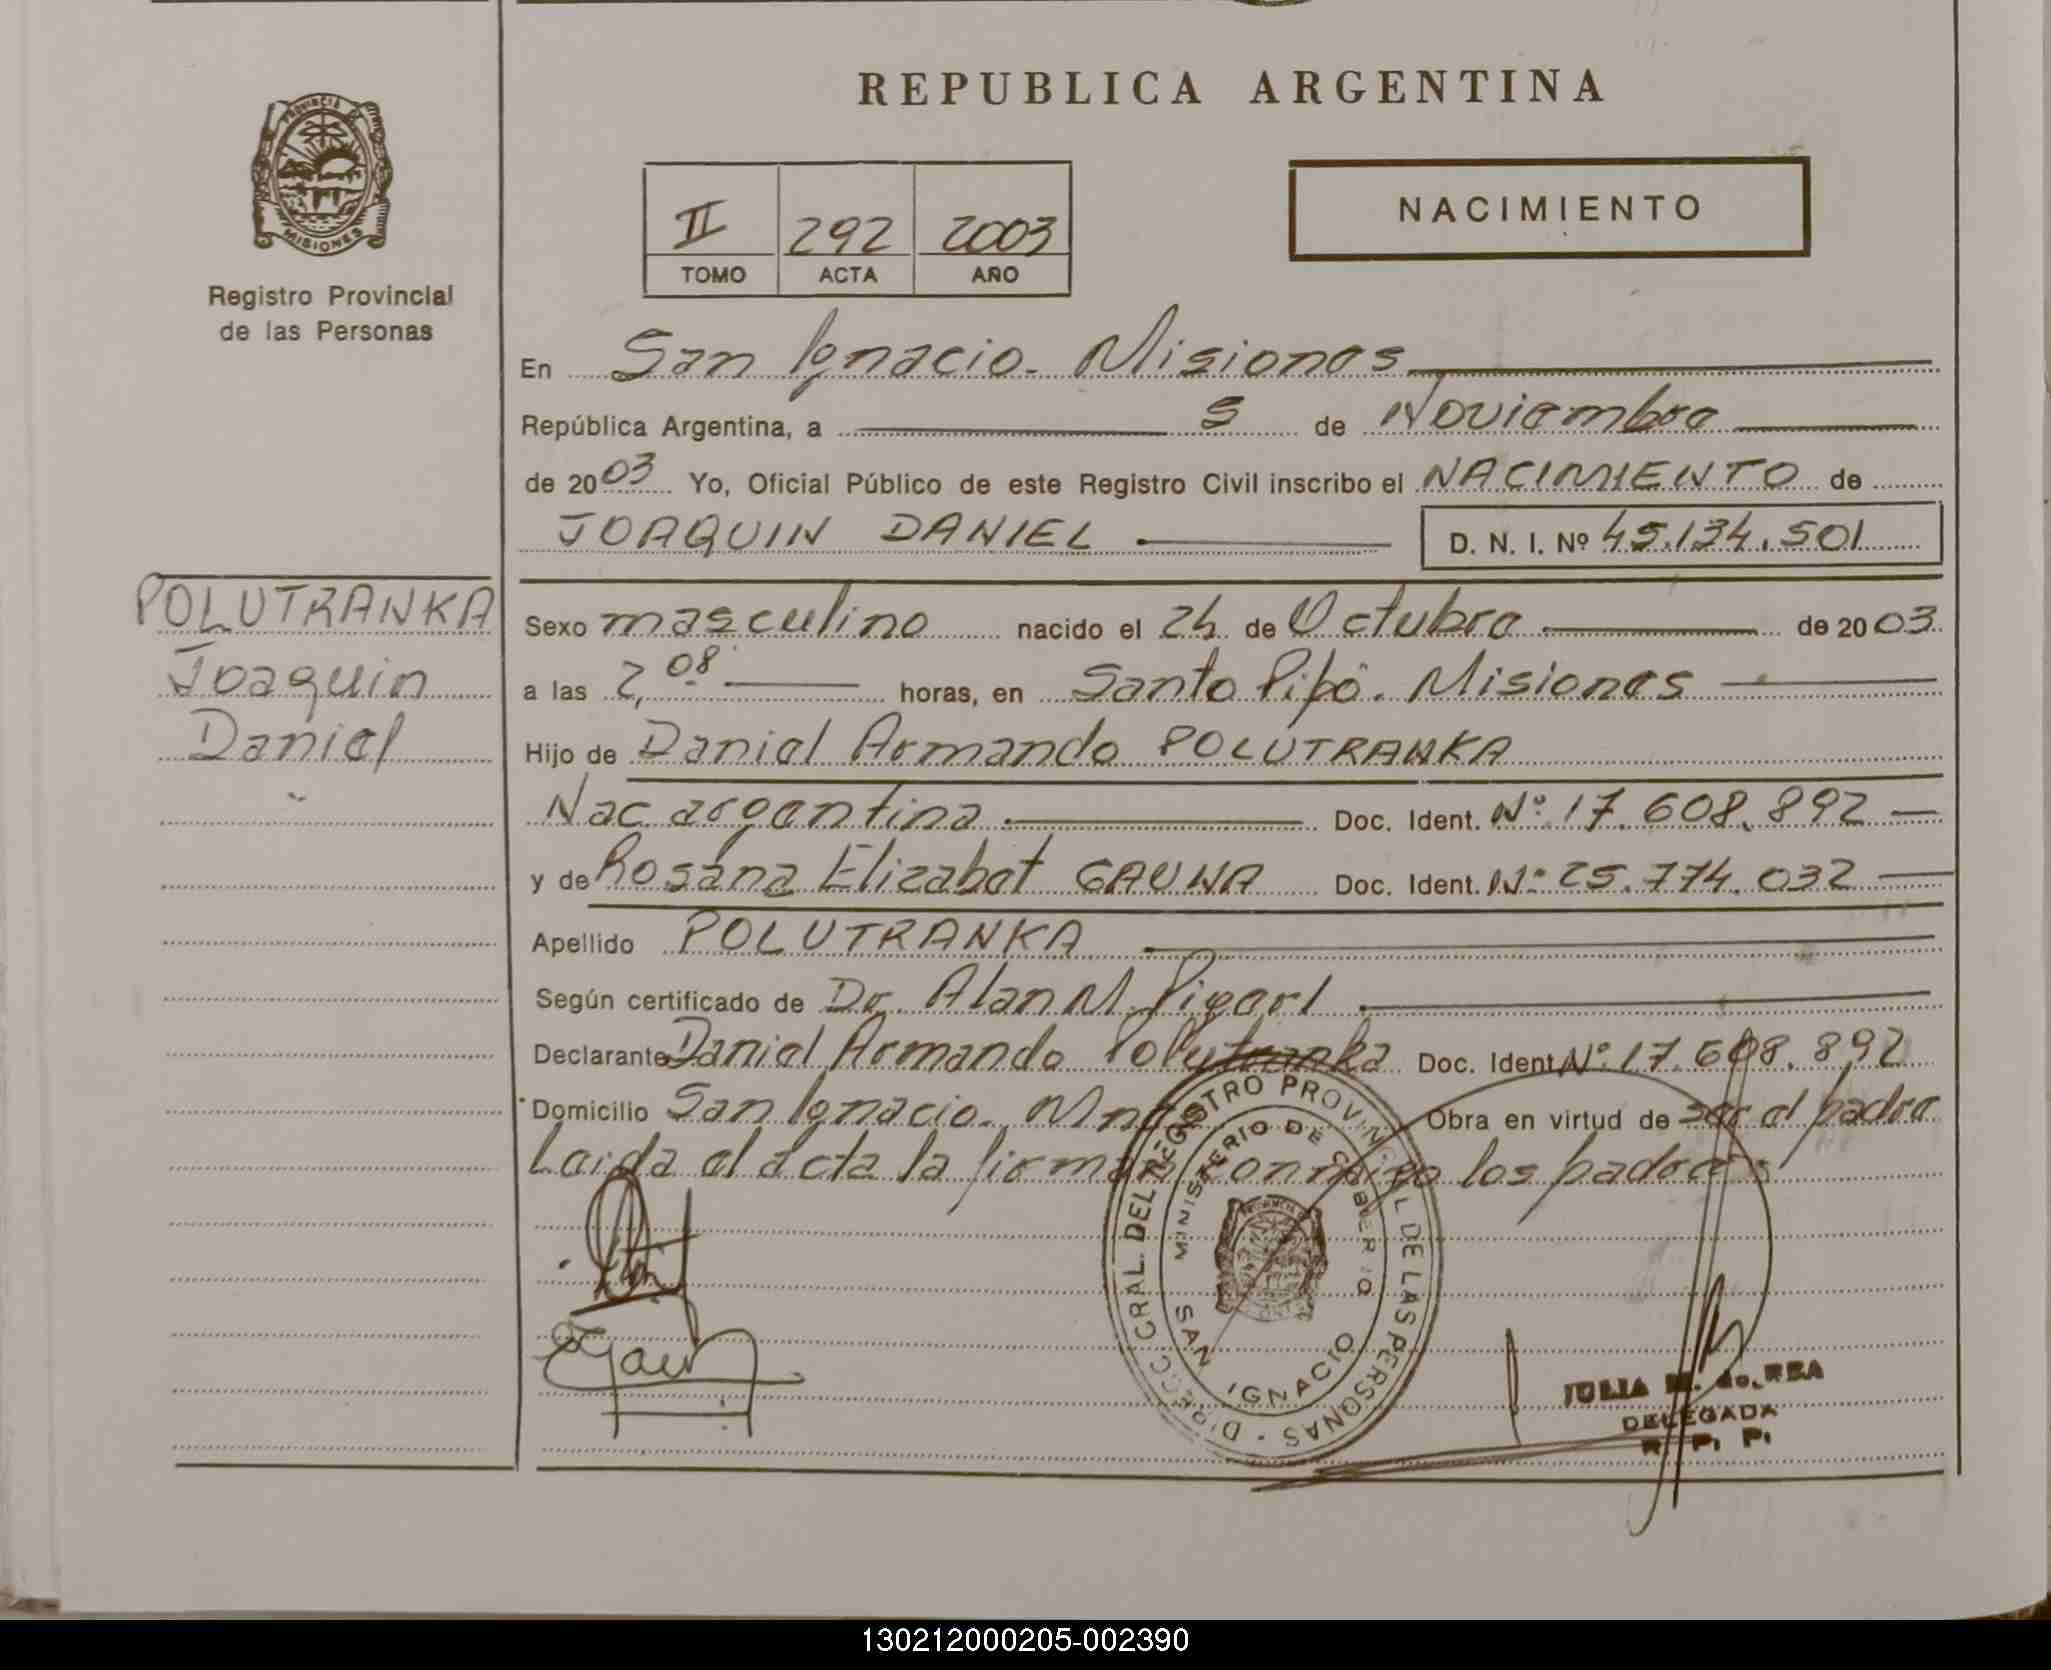 REPUBLICA ARGENTINA
PROVINCIA DE
MISIONES
Registro Provincial
de las Personas
II 292 2003
TOMO ACTA AÑO
NACIMIENTO
En San Ignacio. Misiones
República Argentina, a 5 de Noviembre
de 2003 Yo, Oficial Público de este Registro Civil inscribo el NACIMIENTO de
JOAQUIN DANIEL D. N. I. Nº 45.134.501
POLUTRANKA
Joaquin
Daniel
Sexo masculino nacido el 24 de Octubre de 2003
a las 2,08 horas, en Santo Pipó. Misiones
Hijo de Daniel Armando POLUTRANKA
Nac argentina Doc. Ident. Nº 17.608.892
y de Rosana Elizabet GAUNA Doc. Ident. Nº 25.774.032
Apellido POLUTRANKA
Según certificado de Dr. Alan M.
Declarante Daniel Armando Polutranka Doc. Ident Nº 17.608.892
Domicilio San Ignacio. Mnes Obra en virtud de ser el padre
Leida el acta la firman conmigo los padres
DIRECC GRAL. DEL REGISTRO PROVINCIAL DE LAS PERSONAS
MINISTERIO DE GOBIERNO
SAN IGNACIO
JULIA M. de REA
DELEGADA
R. P. P.
130212000205-002390